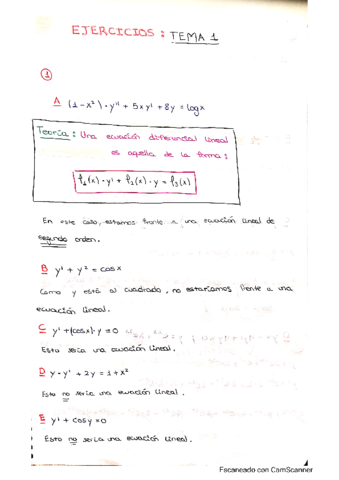 EJERCICIOS : TEMA 1
①
A (1-x²)·y'' + 5xy' + 8y = logx
Teoría: Una ecuación diferencial lineal
es aquella de la forma:
f₁(x)·y' + f₂(x)·y = f₃(x)
En este caso, estamos frente a una ecuación lineal de
segundo orden.
B y' + y² = cosx
Como y está al cuadrado, no estaríamos frente a una
ecuación lineal.
C y' + (cosx)·y = 0
Esto sería una ecuación lineal.
D y·y' + 2y = 1+x²
Esto no sería una ecuación lineal.
E y' + cosy = 0
Esto no sería una ecuación lineal.
Escaneado con CamScanner